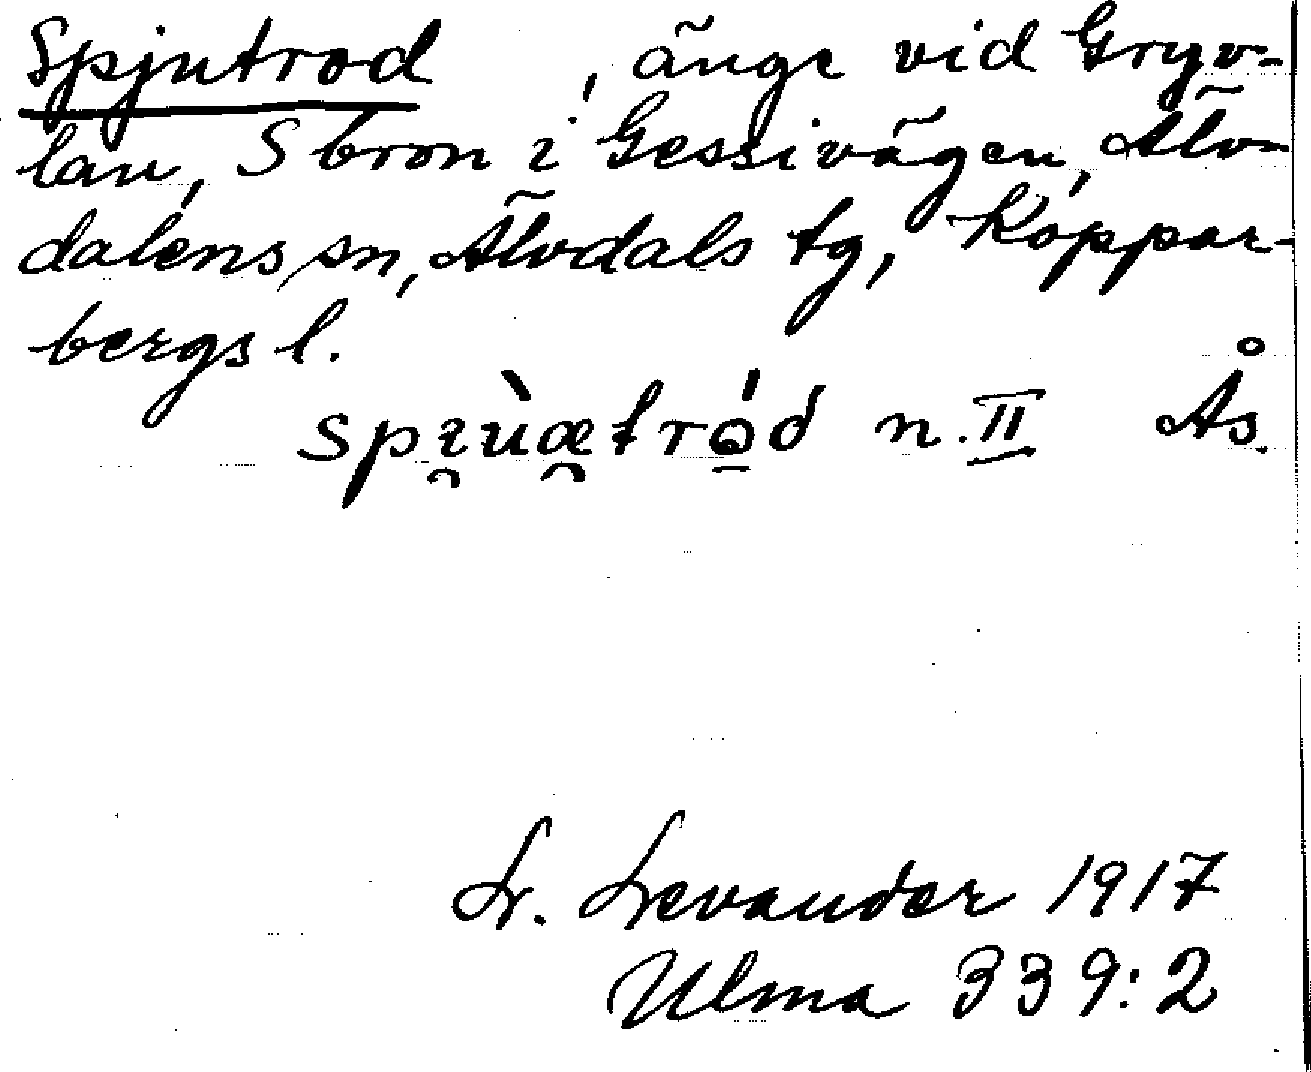 Spjutrod, änge vid Gryv-
lan, S bron i Gessivägen, Älv-
dalens sn, Älvdals tg, Koppar-
bergs l.
spı̯ùæ̯tró̱d n. II Ås.
L. Levander 1917
Ulma 339:2